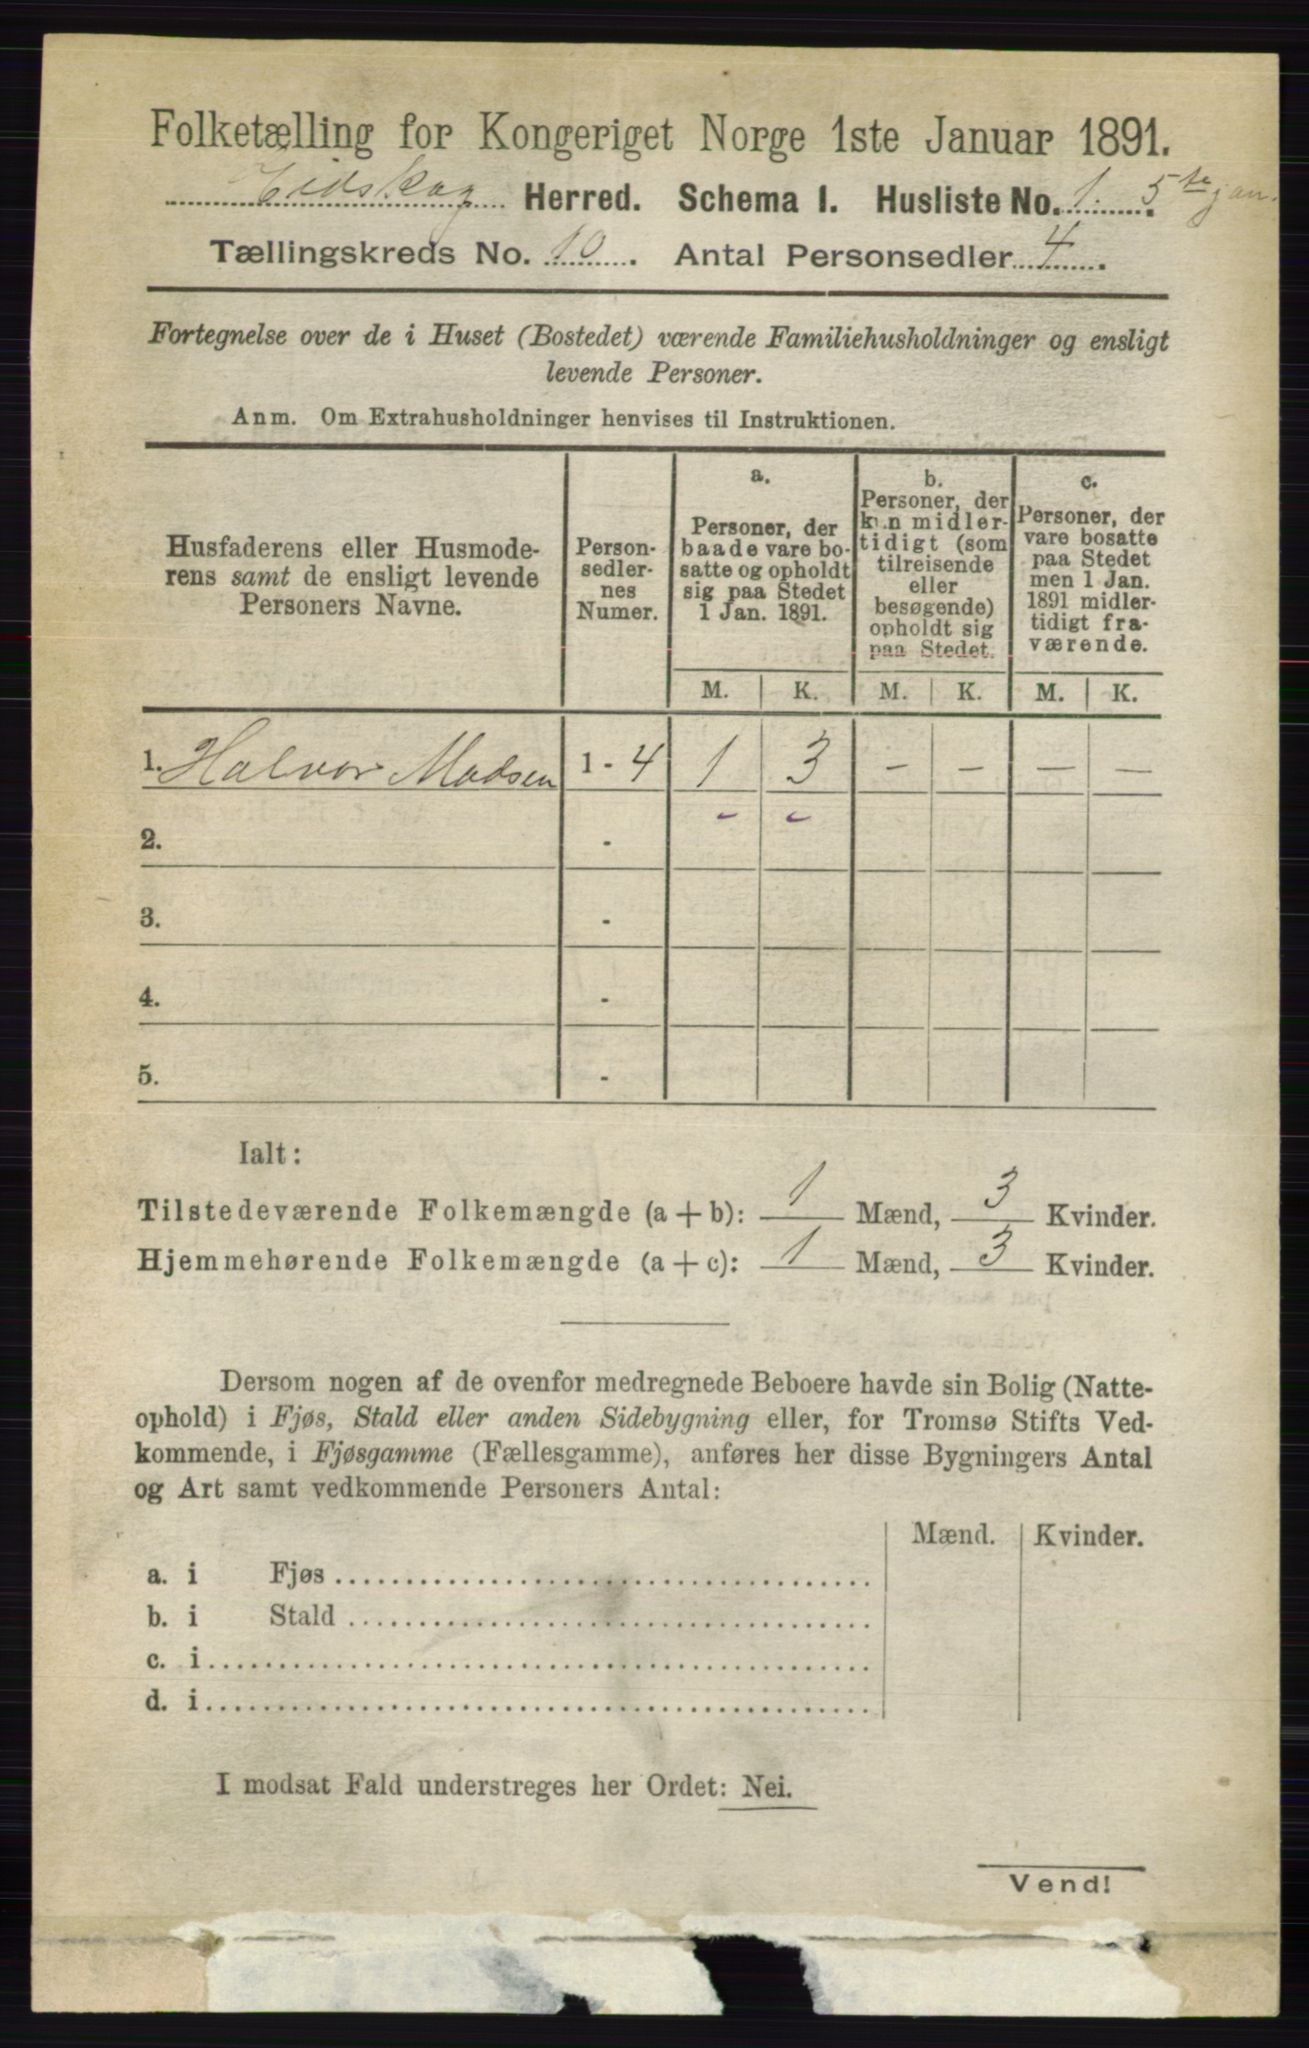 Folketælling for Kongeriget Norge 1ste Januar 1891.
Eidskog Herred. Schema I. Husliste No. 1. 5te jan.
Tællingskreds No. 10. Antal Personsedler 4.
Fortegnelse over de i Huset (Bostedet) værende Familiehusholdninger og ensligt
levende Personer.
Anm. Om Extrahusholdninger henvises til Instruktionen.
Husfaderens eller Husmode-
rens samt de ensligt levende
Personers Navne.
Person-
sedler-
nes
Numer.
a.
Personer, der
baade vare bo-
satte og opholdt
sig paa Stedet
1 Jan. 1891.
b.
Personer, der
kun midler-
tidigt (som
tilreisende
eller
besøgende)
opholdt sig
paa Stedet.
c.
Personer, der
vare bosatte
paa Stedet
men 1 Jan.
1891 midler-
tidigt fra-
værende.
M. K. M. K. M. K.
1. Halvor Madsen 1 - 4 1 3 - - - -
2. -
3. -
4. -
5. -
Ialt:
Tilstedeværende Folkemængde (a + b): 1 Mænd, 3 Kvinder.
Hjemmehørende Folkemængde (a + c): 1 Mænd, 3 Kvinder.
Dersom nogen af de ovenfor medregnede Beboere havde sin Bolig (Natte-
ophold) i Fjøs, Stald eller anden Sidebygning eller, for Tromsø Stifts Ved-
kommende, i Fjøsgamme (Fællesgamme), anføres her disse Bygningers Antal
og Art samt vedkommende Personers Antal:
Mænd. Kvinder.
a. i Fjøs
b. i Stald
c. i
d. i
I modsat Fald understreges her Ordet: Nei.
Vend!